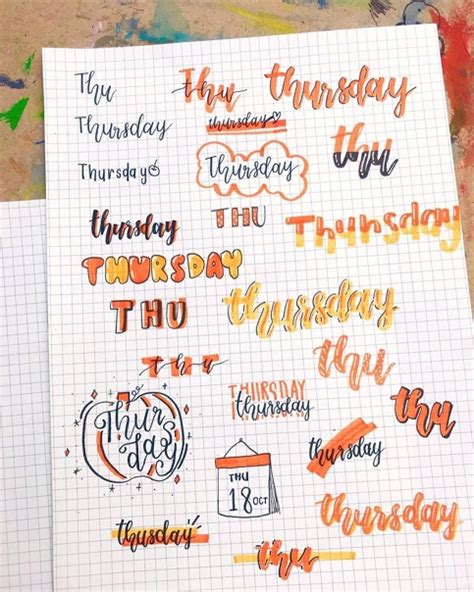 Thu
Thu
thursday
Thursday
thursday
thu
Thursday
Thursday
thursday
THU
Thursday
THURSDAY
THU
thursday
thu
thu
THURSDAY
thursday
thu
Thurs
day
thursday
THU
18 OCT
thursday
thusday
thu